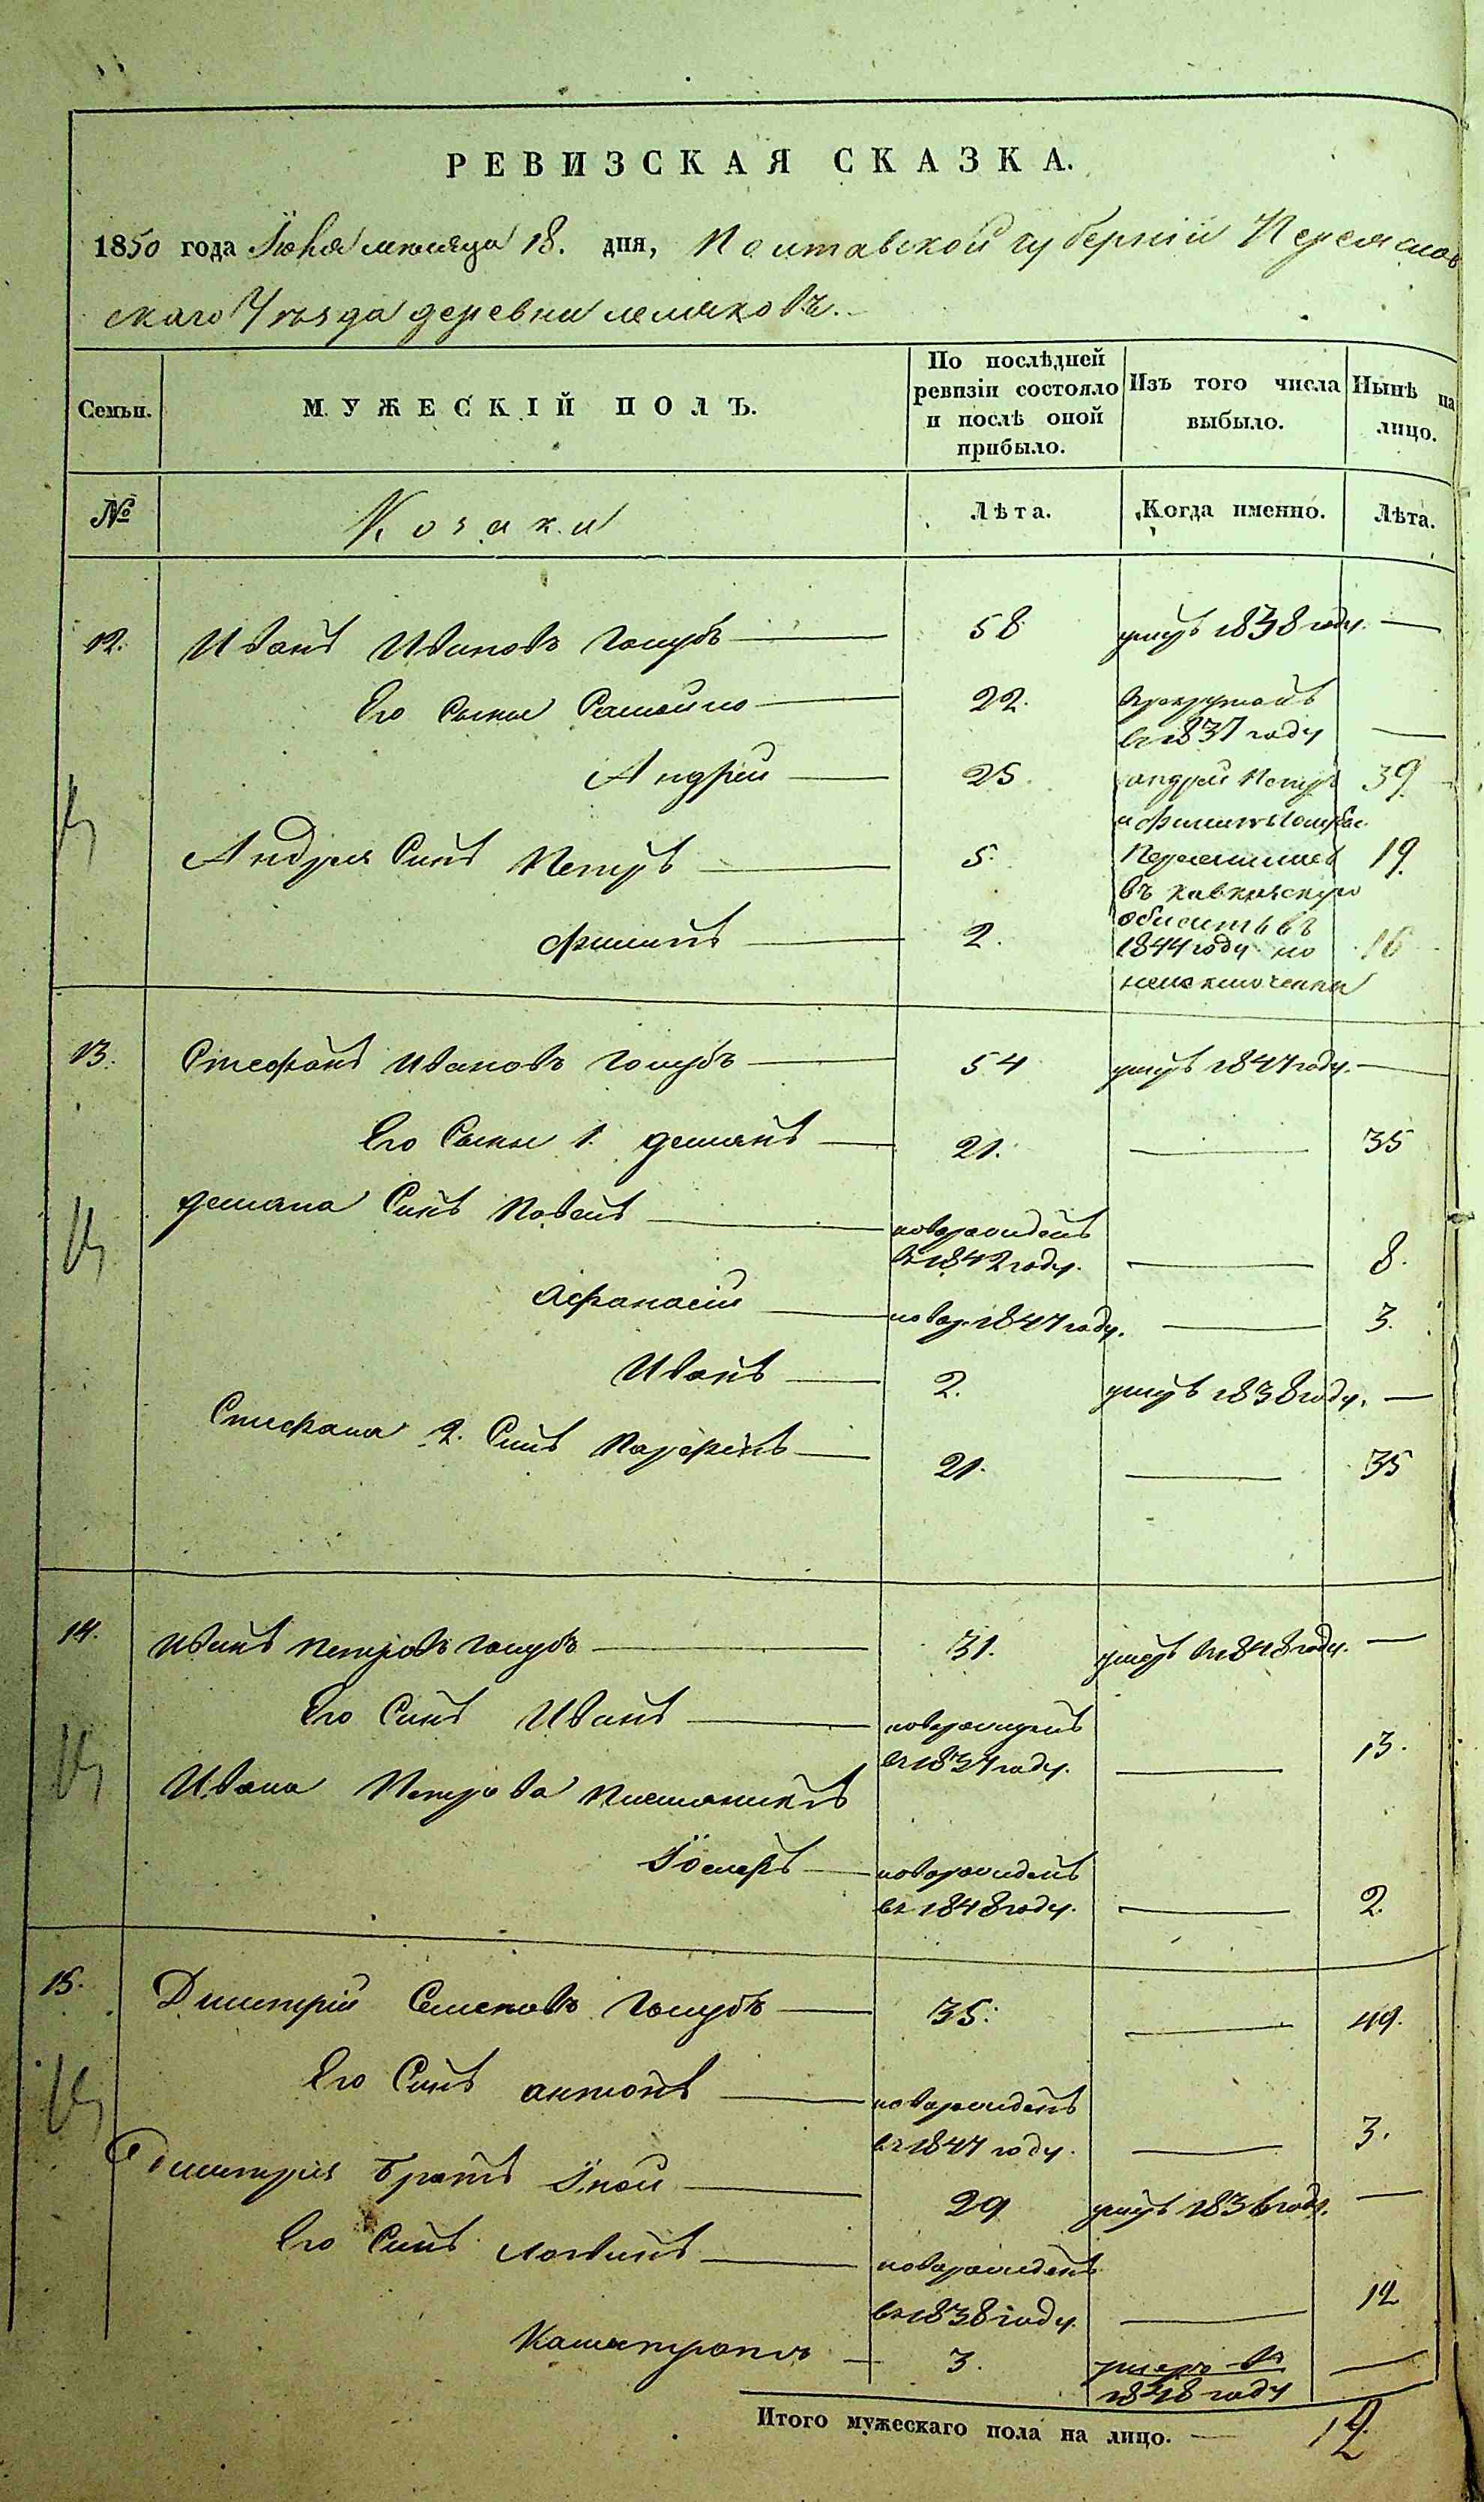 РЕВИЗСКАЯ СКАЗКА.
1850 года Іюня месяца 18. дня, Полтавской губерніи Переяслов
скаго Уезда деревни лемяковъ.
Семьи. МУЖЕСКІЙ ПОЛЪ. По послѣдней ревизіи состояло и послѣ оной прибыло. Изъ того числа выбыло. Нынѣ на лицо.
№ Козаки Лѣта. Когда именно. Лѣта.
12. Иванъ Ивановъ Голубъ 58 умеръ 1838 году. —
Его Сыны Самойло 22. в 1837 году —
Андрей 25. андрей Петръ 39.
и филипъ Голубы
Андрея Синъ Петръ 5. Переселились 19.
въ кавказскую
область въ
филипъ 2. 1844 году но 16
неисключенны
13. Стефанъ Ивановъ Голубъ 54 умеръ 1847 году. —
Его Сыны 1. демянъ 21. — 35
демяна Синъ Павелъ новорожденъ
в 1842 году. — 8.
Афанасій новор. 1847 году. — 3.
Иванъ 2. умеръ 1838 году. —
Стефана 2. Синъ Парфенъ 21. — 35
14. Иванъ Петровъ Голубъ 31. умеръ в 1848 году. —
Его Синъ Иванъ новорожденъ
в 1837 году. — 13.
Ивана Петрова Племянникъ
Іосифъ новорожденъ
в 1848 году. — 2.
15. Димитрій Семеновъ Голубъ 35. — 49.
Его Синъ антонъ новорожденъ
в 1847 году. — 3.
Димитрія Братъ 29 умеръ 1836 году. —
Его Синъ логвинъ новорожденъ
в 1838 году. — 12
Калистратъ 3. умеръ въ —
1848 году
Итого мужескаго пола на лицо. — 12